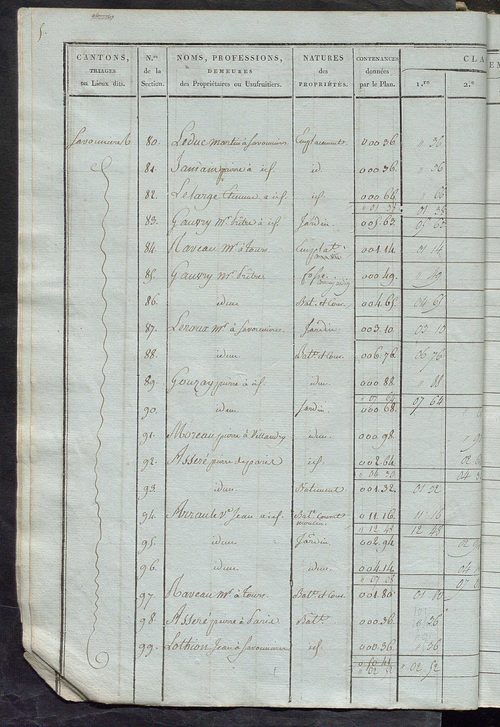 5.
CANTONS, TRIAGES ou Lieux dits. N.os de la Section. NOMS, PROFESSIONS, DEMEURES des Propriétaires ou Usufruitiers. NATURES des PROPRIÉTÉS. CONTENANCES données par le Plan. CLA
1.re 2.e
80. Leduc martin à Savonnieres Emplacement 0 00 36. " 36
81. pierre à id. id 0 00 36. " 36
82. Letarge Etienne à id. id. 0 00 66 " 66
" 01 38 01 38
83. Gautry mr. à id. Jardin. 0 05 63
84. Raveau mr. à tours. 0 01 14 01 14
85. Gautry mr. 0 00 49. " 49
86. idem Bat. et Cour. 0 04 65 04 65
87. Leroux mr. à Savonnieres. Jardin. 0 03 10. 03 10
88. idem Batt. et Cour. 0 06 76. 06 76
89. Gouzay pierre à id. idem 0 00 88. " 88
" 07 64 07 64
90. idem. Jardin. 0 00 68.
91. Moreau pierre à Villandry idem. 0 00 98.
92. Asseré pierre id. 0 02 64
93. idem Batiment 0 01 32. 01 32
94. Jean à id. 0 11 16. 11 16
" 12 48 12 48
95. idem Jardin 0 02 94
96. idem idem 0 04 14 04
97. Raveau mr. à tours. Batt. et Cour. 0 01 80
98. Asseré pierre à Paris Batt. 0 00 36. " 36
99. Lothion Jean à Savonnieres id. 0 00 36 " 36
" 02 52 " 02 52